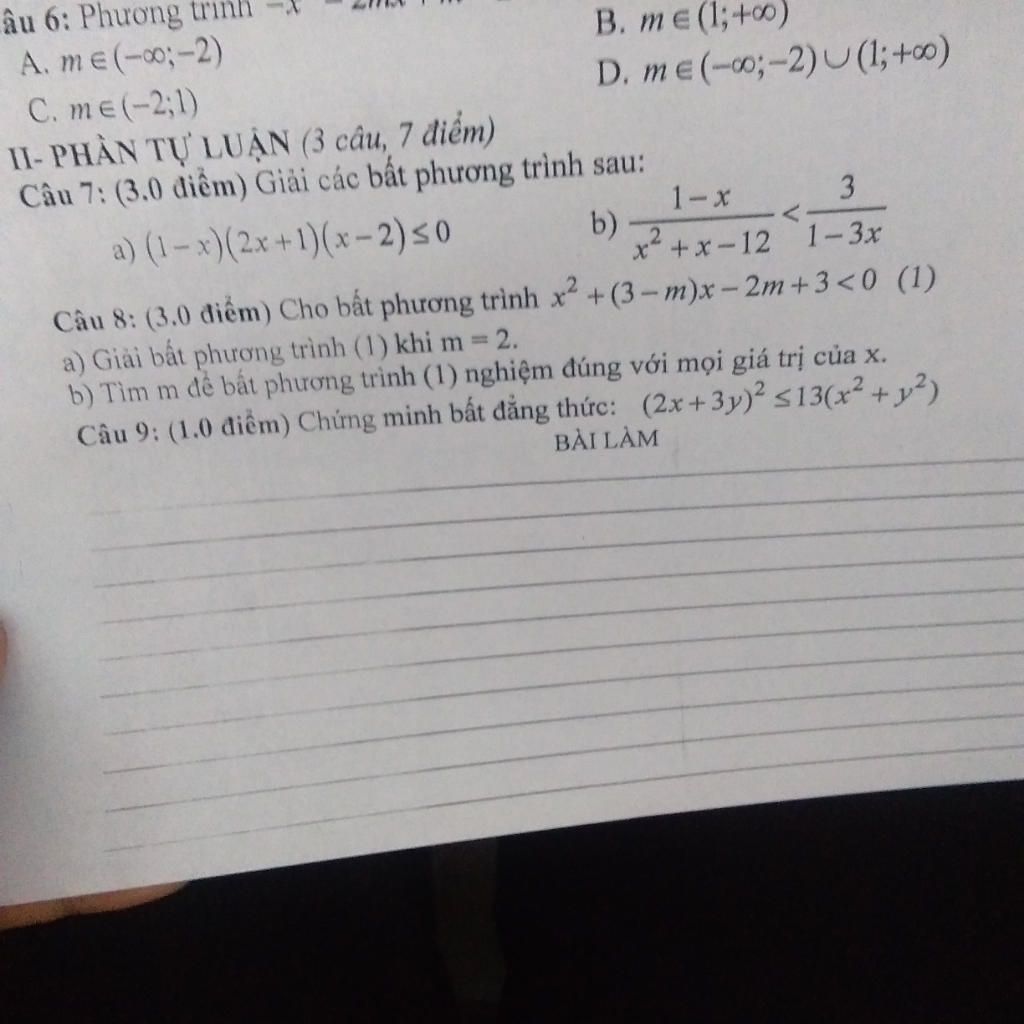 âu 6: Phương trình
A. m ∈ (−∞;−2)
B. m ∈ (1;+∞)
C. m ∈ (−2;1)
D. m ∈ (−∞;−2) ∪ (1;+∞)
II- PHẦN TỰ LUẬN (3 câu, 7 điểm)
Câu 7: (3.0 điểm) Giải các bất phương trình sau:
a) (1−x)(2x+1)(x−2) ≤ 0
b) (1−x)/(x²+x−12) < 3/(1−3x)
Câu 8: (3.0 điểm) Cho bất phương trình x² + (3−m)x − 2m + 3 < 0 (1)
a) Giải bất phương trình (1) khi m = 2.
b) Tìm m để bất phương trình (1) nghiệm đúng với mọi giá trị của x.
Câu 9: (1.0 điểm) Chứng minh bất đẳng thức: (2x+3y)² ≤ 13(x² + y²)
BÀI LÀM